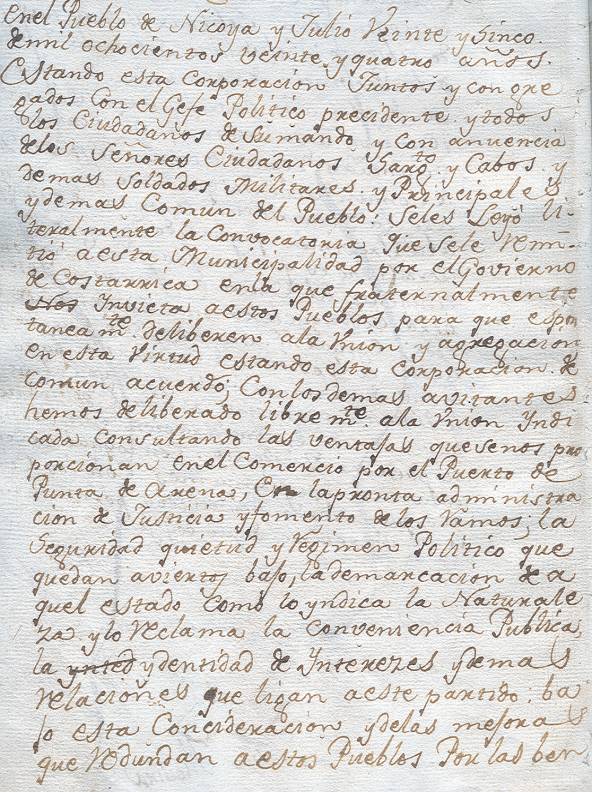 en el Pueblo de Nicoya y Julio Veinte y Sinco.
de mil ochocientos veinte y quatro años.
Estando esta corporacion Juntos y con gre
gados con el Gefe Politico precidente y todos
los Ciudadanos de su mando y con anuencia
de los Señores Ciudadanos Sargto. y Cabos. y
demas Soldados Militares y Principales
y demas Comun del Pueblo: Seles Leyó li-
teralmente la Convocatoria que sele remi-
tió a esta Municipalidad por el Govierno
de Costarrica enla que fraternalmente
Nos Invieta aestos Pueblos para que espon
tanea mte. deliberen ala Vnion y agregacion
en esta Virtud estando esta corporacion de
comun acuerdo; Conlosdemas avitantes
hemos deliberado libre mte. ala Vnion Yndi
cada consultando las ventajas quesenos pro
porcionan enel Comercio por el Puerto de
Punta de Arena, En lapronta administra
cion de Justicia yfomento delos Ramos; la
Seguridad quietud y Regimen Politico que
quedan aviertos bajo, lademarcacion de a
quel estado como lo yndica la Naturale
za y lo reclama la conveniencia Publica,
la ynted ydentidad de Interezes ydemas
relaciones que ligan aeste partido: ba
jo esta Concideracion ydelas mejoras
que redundan aestos Pueblos Por las ben